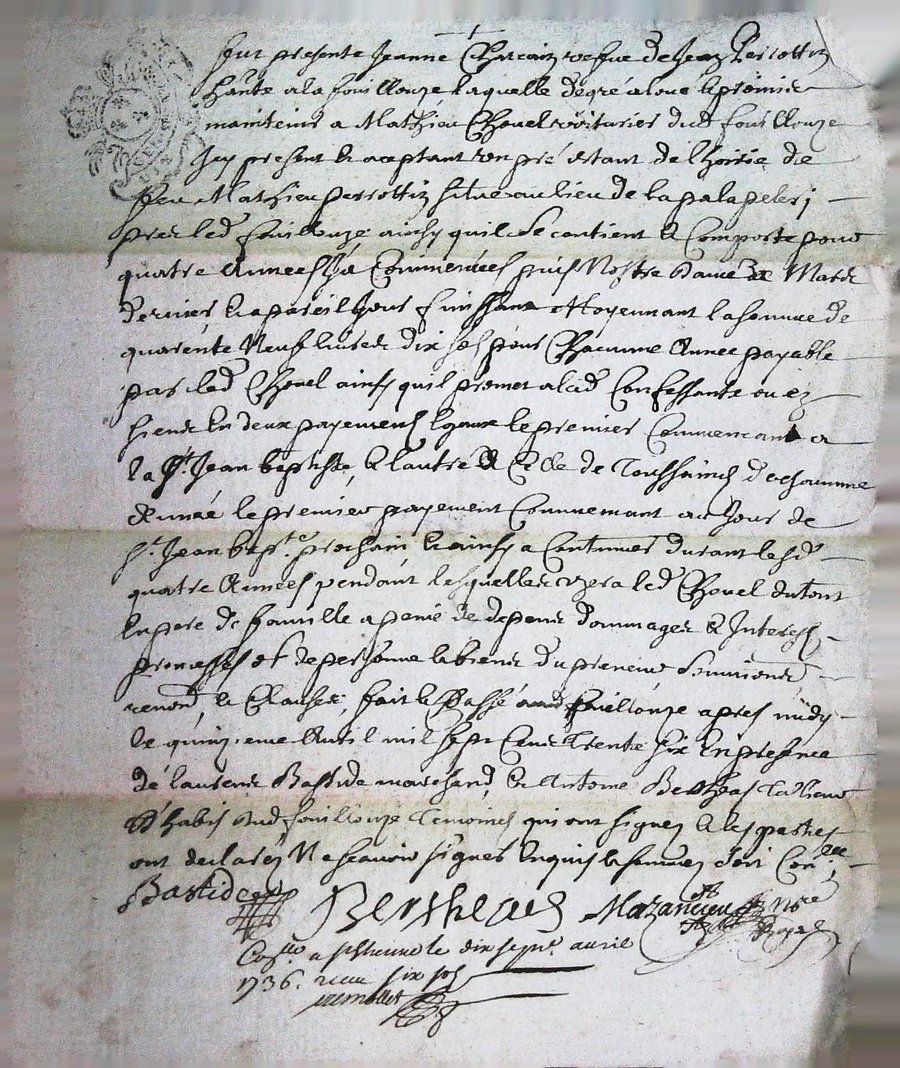 fut presente Jeanne Charcain vefve de Jean Perrottin
hante a la fouillouze laquelle de gré a loué & promis
maintenir a Mathieu Chovel voiturier dud fouillouze
Icy present & aceptant un pré estant de l'hoirie de
feu Mathieu perrottin situé au lieu de la palapelery
pres led fouillouze ainsy quil se contient & Comporte pour
quatre Années ja Commencées puis Nostre Dame de Mars
dernier & a pareil Jour finissant Moyennant la somme de
quarente Neuf livres dix sols pour Chacune Année payable
par led Chovel ainsy quil promet a lad Confessante ou ez
siens En deux payements Egaux le premier Commencant a
la St Jean baptiste, & l'autre a Celle de Toussaincts de chacunne
Année le premier payement Commencant au Jour de
St Jean bapte prochain & ainsy a Continuer durant lesd
quatre Années pendant lesquelles uzera led Chovel du tout
En pere de famille a peine de depens dommages & Interests
promesses obt de personne & biens du preneur soumions
renond & Clauses, fait & Passé aud fouillouze apres midy
le quinzieme Avril mil sept Cens Trente six En presence
de laurens Bastide marchand & Antoine Bertheas Tallieur
d'habis dud fouillouze Temoins qui ont signez & les parties
ont declarés Ne scavoir signer Enquis & sommez
Bastide Bertheas Mazancieu Nore
Royal
Collé a st Etienne le dix sept avril
1736. receu six sols